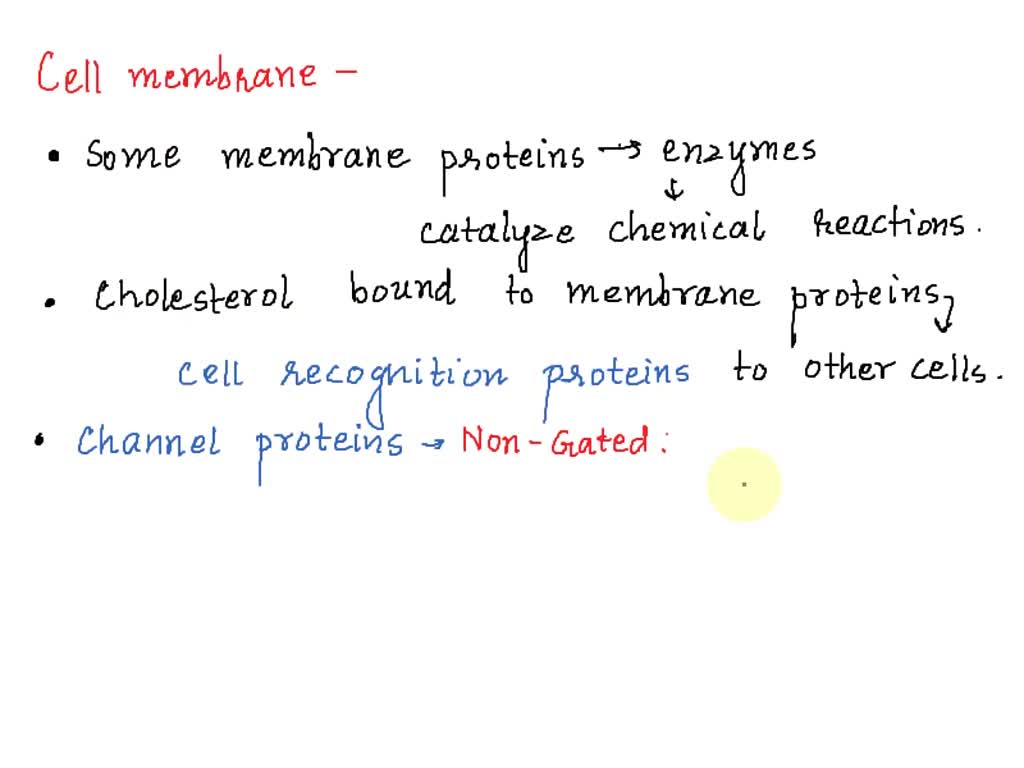 Cell membrane –
• Some membrane proteins → enzymes
↓
catalyze chemical reactions.
• Cholesterol bound to membrane proteins
↓
cell recognition proteins to other cells.
• Channel proteins → Non-Gated: